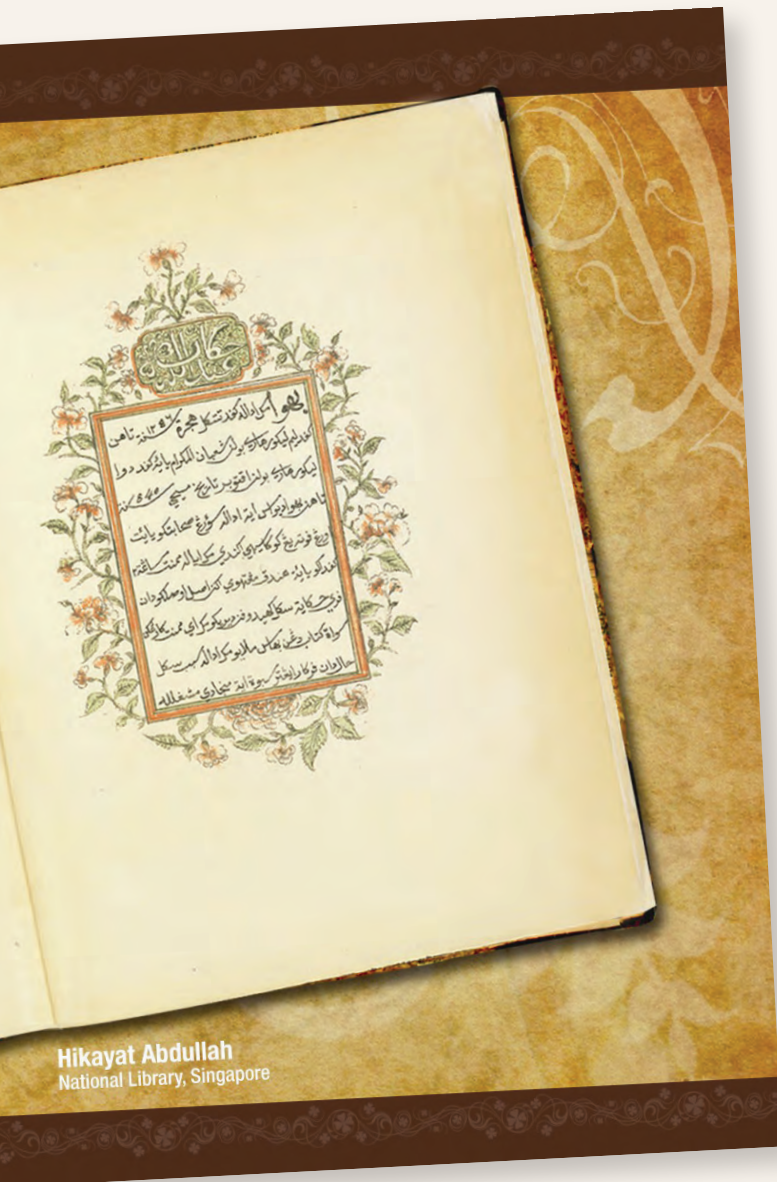 حکاية عبدالله
بهوا مک اداله کفد تتکل هجرة سنة ١٢٥٦ تاهن
کفد ليم ليکور هاري بولن شعبان المکرم يايت کفد دوا
ليکور هاري بولن اقتوبر تاريخ مسيحي سنة
تاهن بهوا دواس ايت اداله سؤرڠ صحابتکو يايت
اورڠ فوته يڠ کوکاسيهي اکندي مک اياله ممنت ساڠة٢
کفدکو يايت هندق مڠتهوي اکن اصل اوصولکو دان
فري حکاية سکل کهيدوفن ديريکو مک اي ممنت کارڠکن
سواة کتاب دڠن بهاس ملايو مک اداله سبب سکل
حال دان فرکارا يڠترسبوة ايت منجادي مشغوله
Hikayat Abdullah
National Library, Singapore